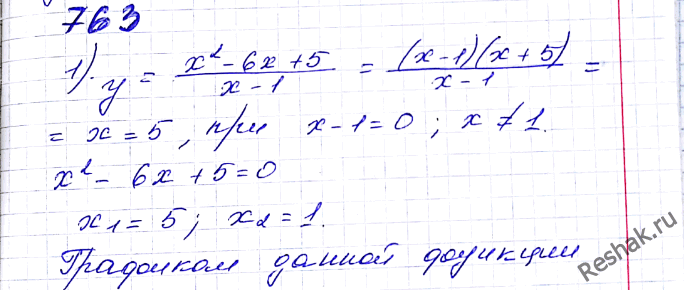 763
1). y = \frac{x^2 - 6x + 5}{x - 1} = \frac{(x-1)(x+5)}{x-1} =
= x = 5, при x - 1 = 0; x ≠ 1.
x^2 - 6x + 5 = 0
x_1 = 5; x_2 = 1.
Графиком данной функции
Reshak.ru